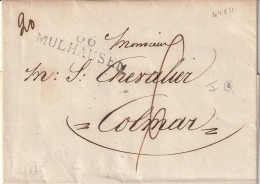 20
66
MULHAUSEN
Monsieur
m: S: Chevalier
Colmar
8